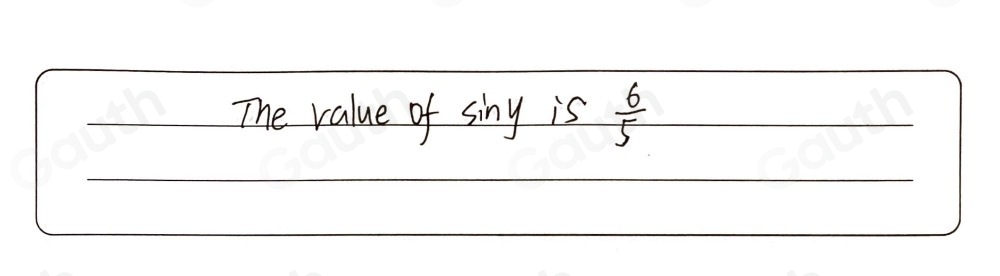 The value of siny is 6/5
Gauth Gauth Gauth Gauth